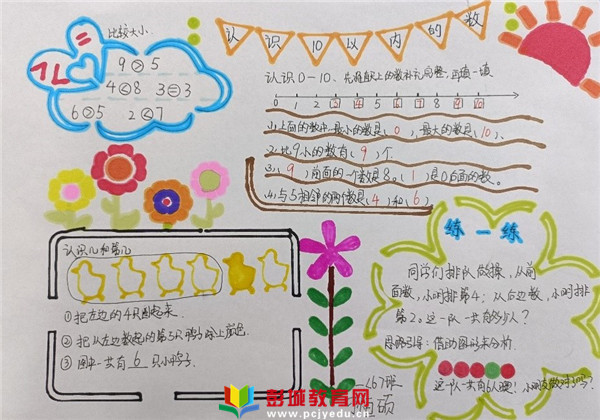 认识10以内的数
比较大小
9>5
4<8 3=3
6>5 2<7
认识0-10、先将直线上的数补充完整,再填一填.
0 1 2 3 4 5 6 7 8 9 10
1、上面的数中,最小的数是(0),最大的数是(10).
2、比9小的数有(9)个.
3、(9)前面的一个数是8。(1)是0后面的数。
4、与5相邻的两个数是(4)和(6).
认识几和第几
①把左边的4只圈起来.
②把从左边数起的第5只鸭子涂上颜色.
③图中一共有6只小鸭子.
练一练
同学们排队做操,从前
面数,小明排第4;从后边数,小明排
第2。这一队一共有多少人?
思路引导:借助图示来分析.
这个队一共有
彭城教育网
www.pcjyedu.cn